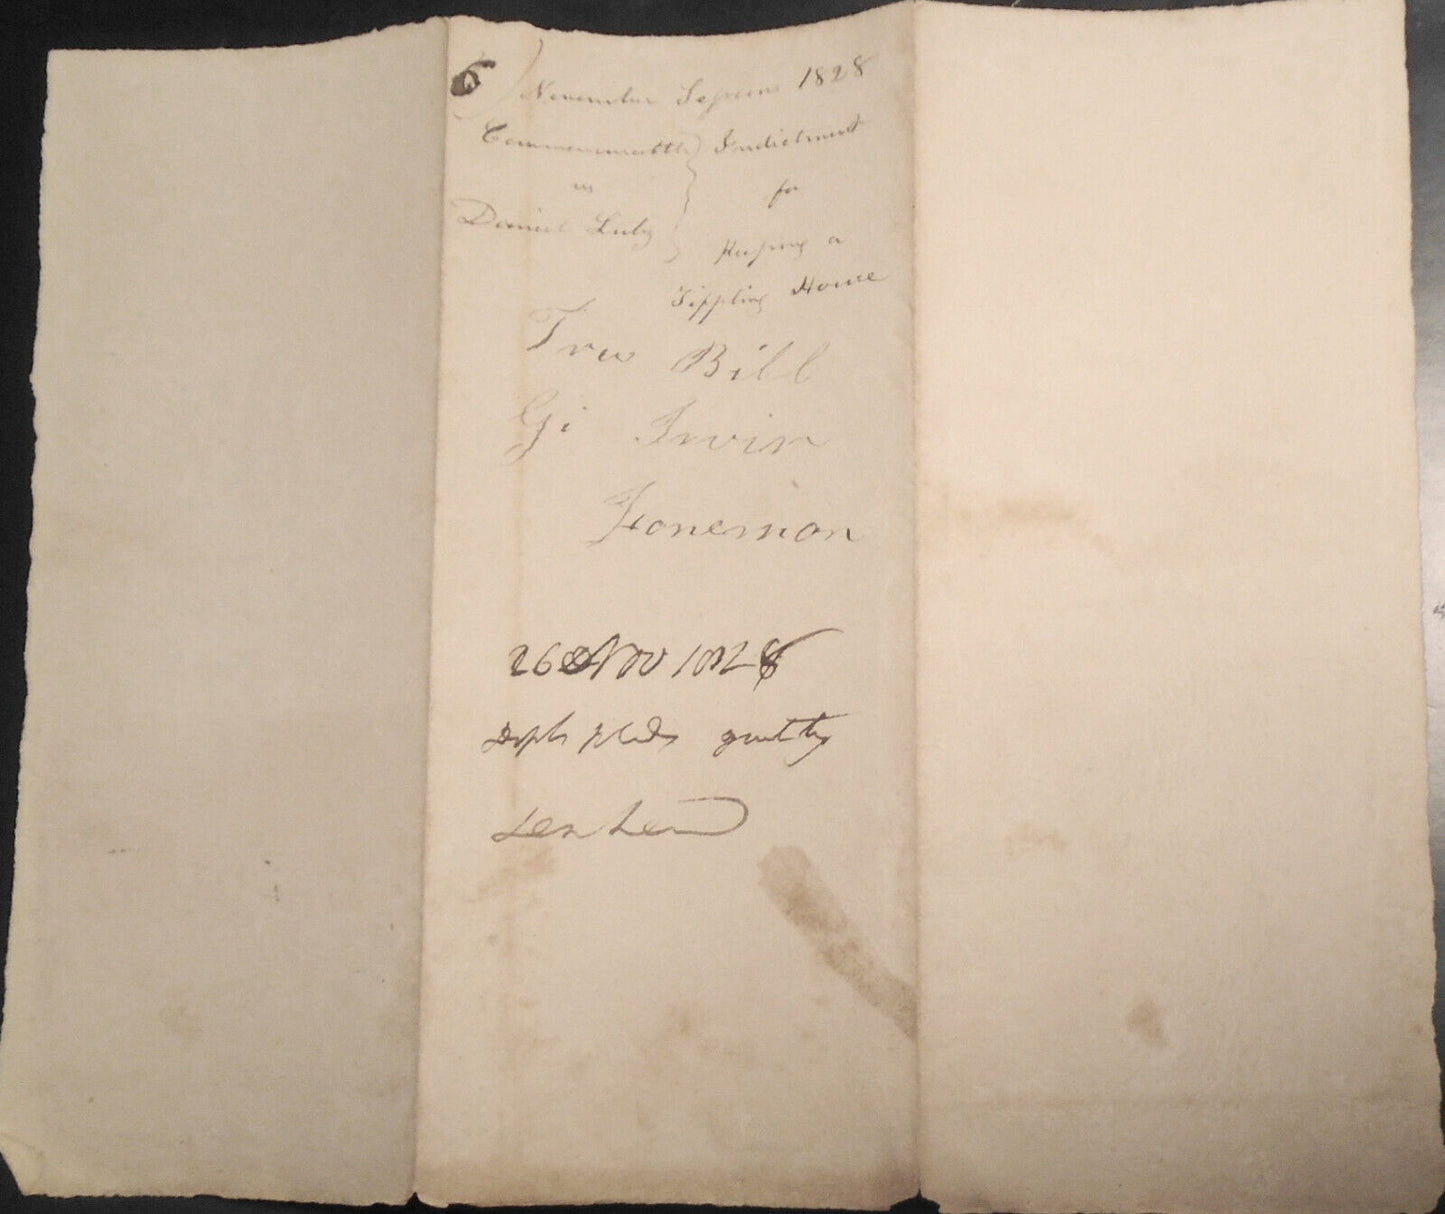 6) November Sessions 1828
Commonwealth } Indictment
vs for
Daniel Luby Keeping a
Tippling House
True Bill
Irvin
Foneman
26 Nov 1828
pleads guilty